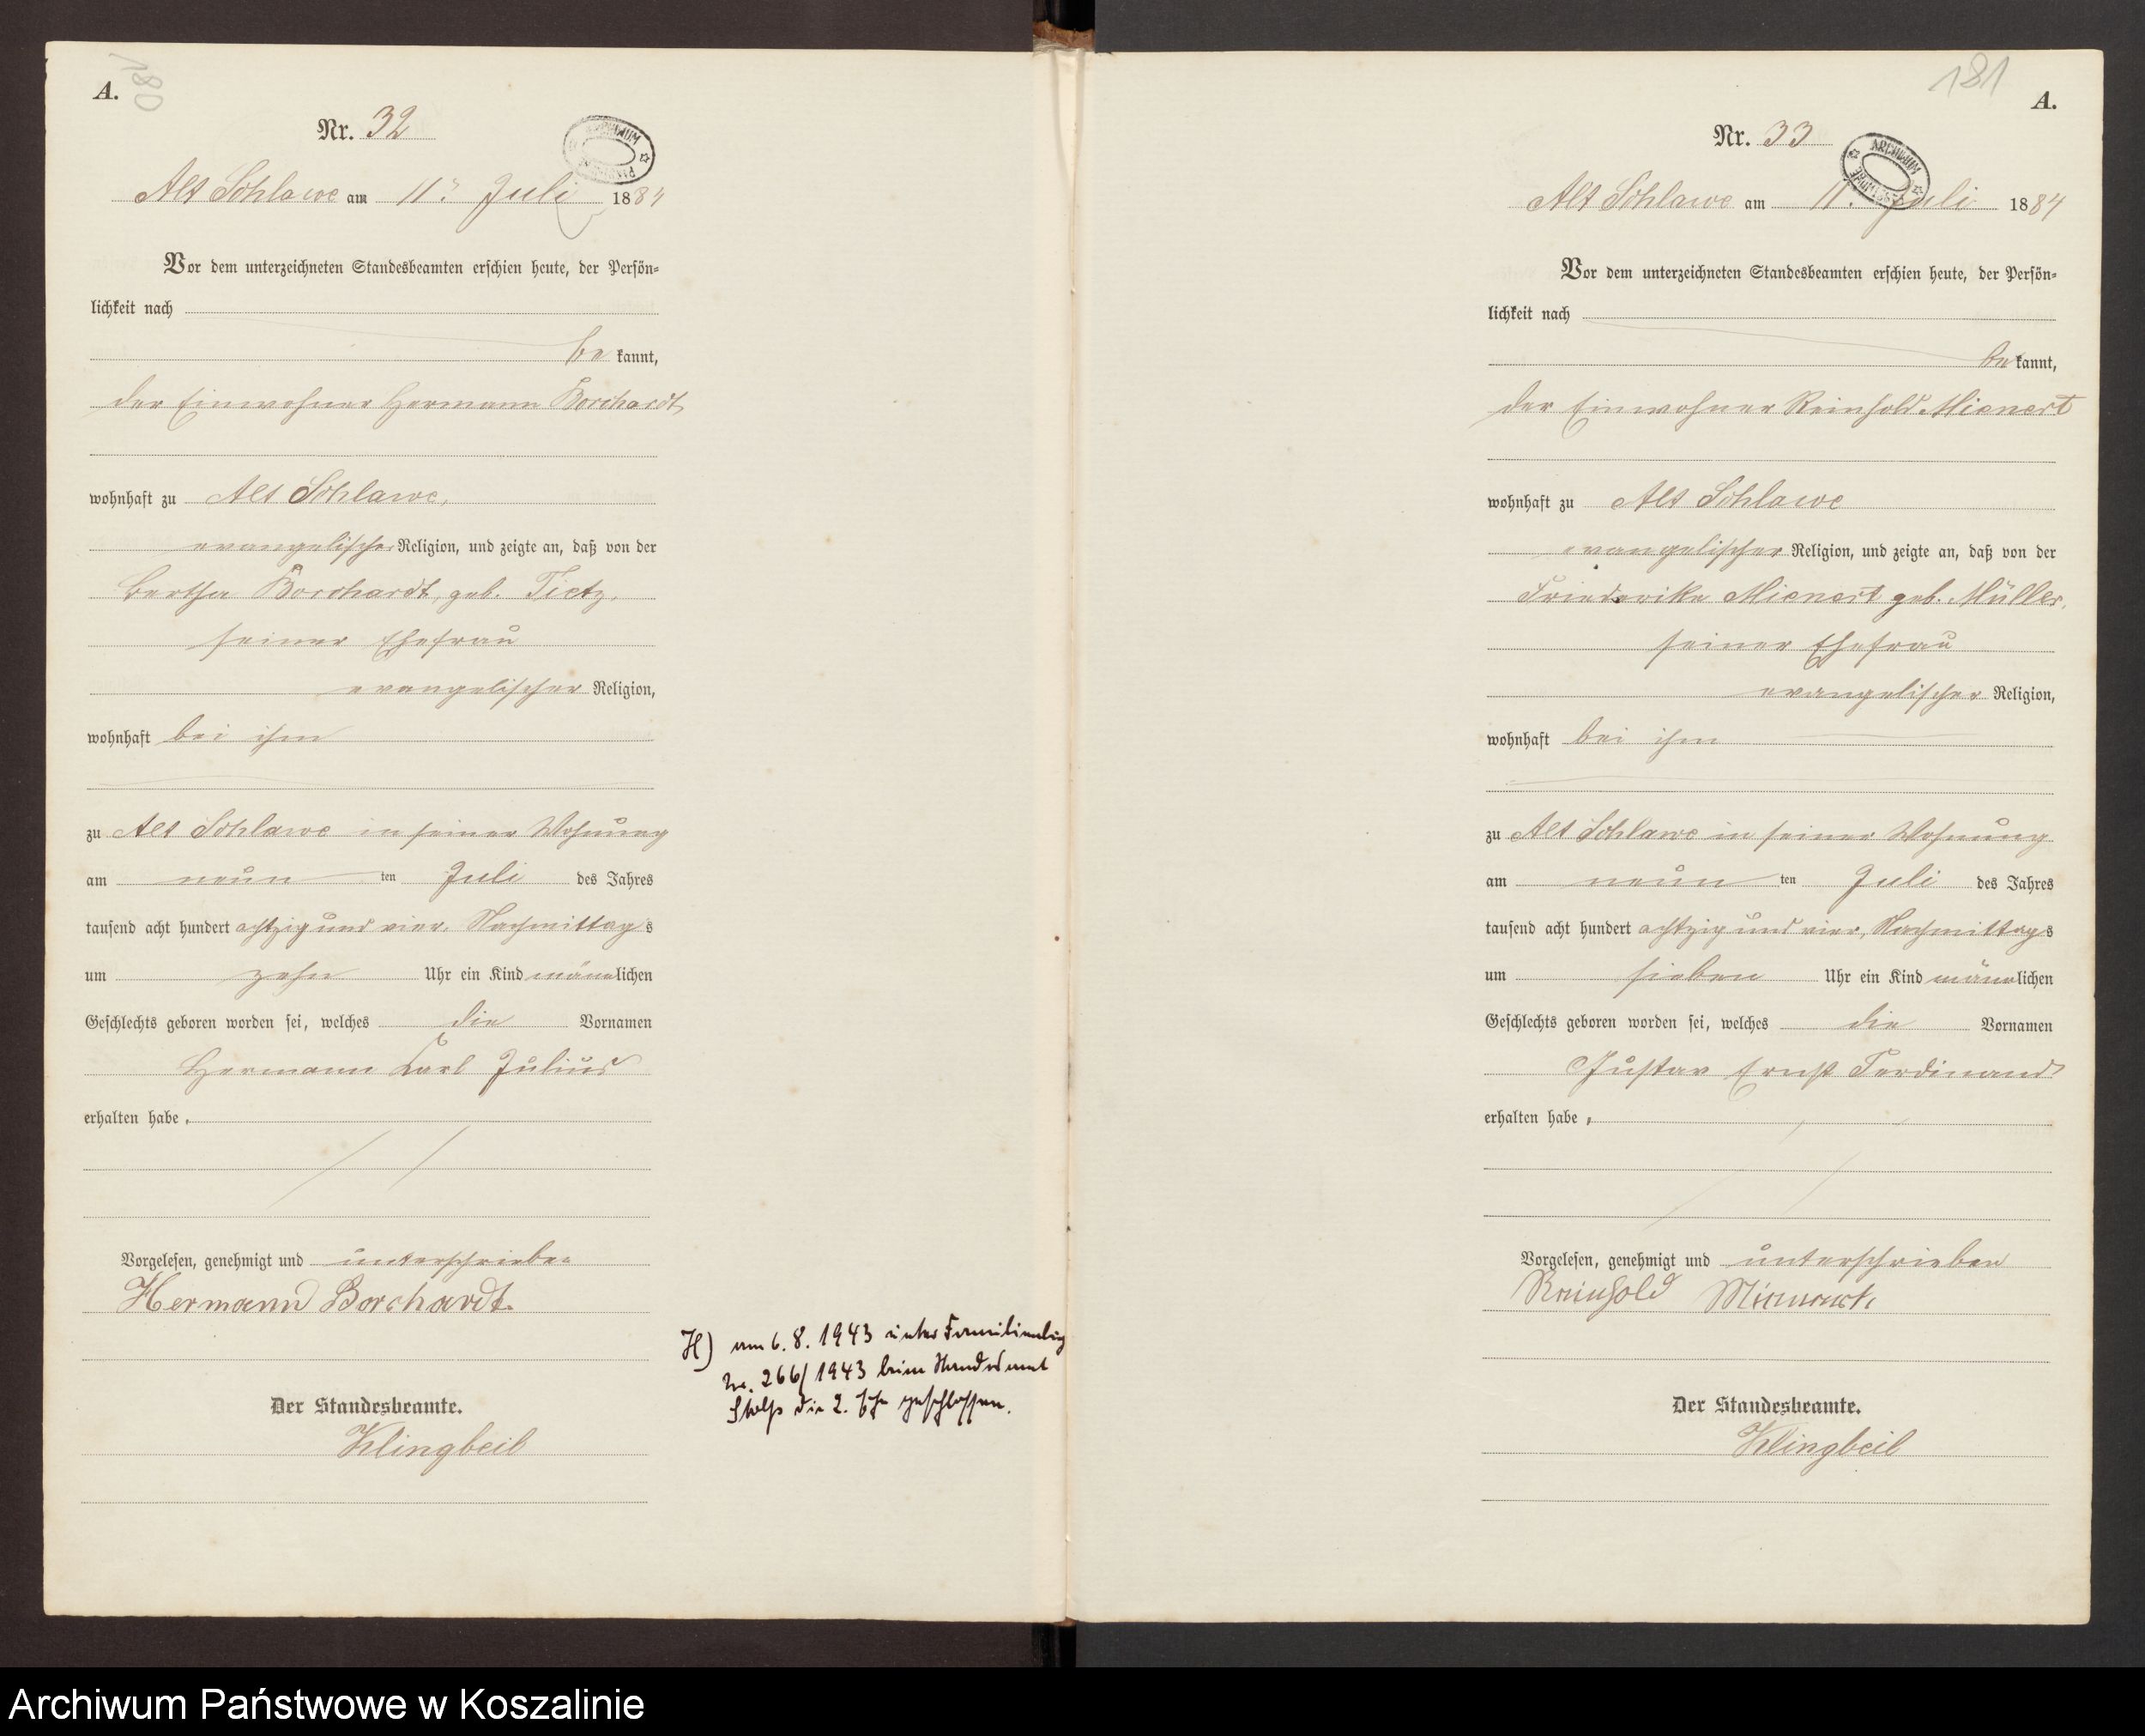 A.
180
Nr. 32
Alt Schlawe am 11. Juli 1884
Vor dem unterzeichneten Standesbeamten erschien heute, der Persön-
lichkeit nach
be kannt,
der Einwohner Hermann Borchardt
wohnhaft zu Alt Schlawe,
evangelischer Religion, und zeigte an, daß von der
Bertha Borchardt, geb. Tietz,
seiner Ehefrau
evangelischer Religion,
wohnhaft bei ihm
zu Alt Schlawe in seiner Wohnung
am neun ten Juli des Jahres
tausend acht hundert achtzig und vier, Nachmittags
um zehn Uhr ein Kind männlichen
Geschlechts geboren worden sei, welches die Vornamen
Hermann Karl Julius
erhalten habe.
Vorgelesen, genehmigt und unterschrieben
Hermann Borchardt.
Der Standesbeamte.
Klingbeil
H) am 6. 8. 1943 unter Familienbuch
Nr. 266/1943 beim Standesamt
Stolp die 2. Ehe geschlossen.
181
A.
Nr. 33
ARCHIWUM
Alt Schlawe am 11. Juli 1884
Vor dem unterzeichneten Standesbeamten erschien heute, der Persön-
lichkeit nach
be kannt,
der Einwohner Reinhold Mienert
wohnhaft zu Alt Schlawe
evangelischer Religion, und zeigte an, daß von der
Friederike Mienert geb. Müller,
seiner Ehefrau
evangelischer Religion,
wohnhaft bei ihm
zu Alt Schlawe in seiner Wohnung
am neun ten Juli des Jahres
tausend acht hundert achtzig und vier, Nachmittags
um sieben Uhr ein Kind männlichen
Geschlechts geboren worden sei, welches die Vornamen
Gustav Ernst Ferdinand
erhalten habe.
Vorgelesen, genehmigt und unterschrieben
Reinhold Mienert.
Der Standesbeamte.
Klingbeil
Archiwum Państwowe w Koszalinie